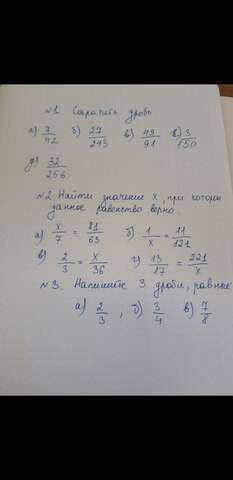 №1. Сократить дробь
а) 7/42 б) 27/243 в) 49/91 в) 3/150
д) 32/256
№2. Найти значение х, при котором
данное равенство верно.
а) х/7 = 81/63 б) 1/х = 11/121
в) 2/3 = х/36 г) 13/17 = 221/х
№3. Напишите 3 дроби, равные
а) 2/3, б) 3/4 в) 7/8